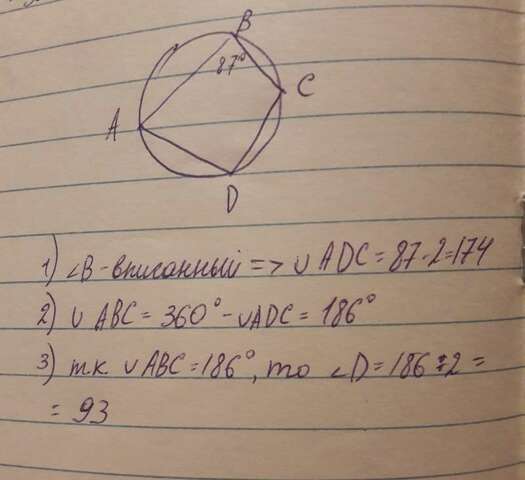 B
87°
C
A
D
1) ∠B - вписанный => ∪ ADC = 87·2=174
2) ∪ ABC = 360° - ∪ADC = 186°
3) т.к. ∪ ABC = 186°, то ∠D = 186:2 =
= 93